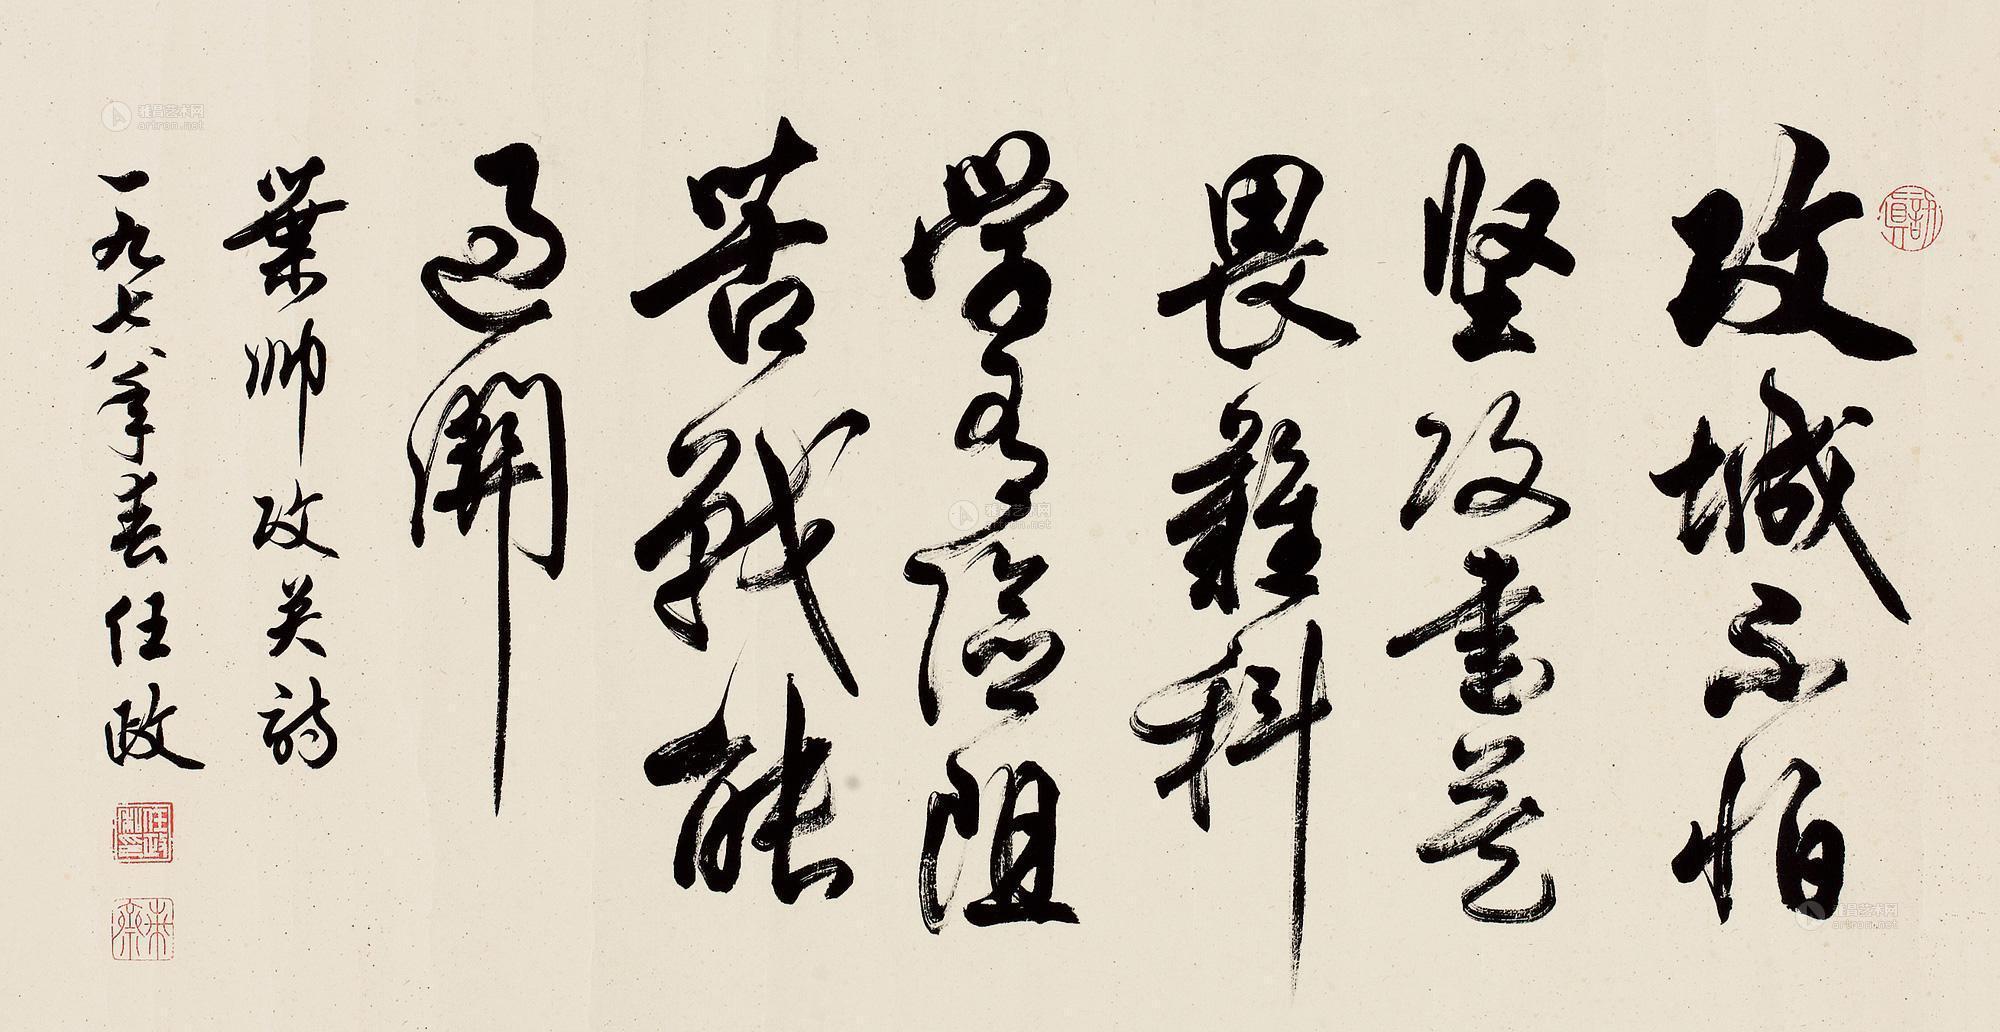 攻城不怕
坚攻書莫
畏難科
学有險阻
苦戰能
過關
葉帥攻关詩
一九七八年春任政
任政私印
雅昌艺术网
artron.net
雅昌艺术网
artron.net
雅昌艺术网
artron.net